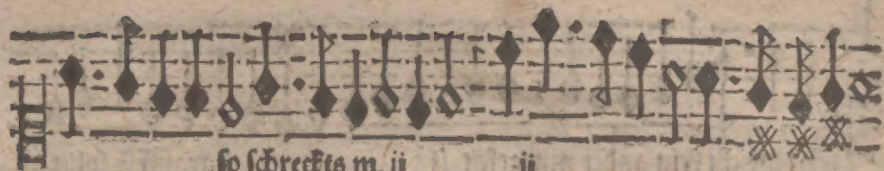 so schreckts m. ij ij